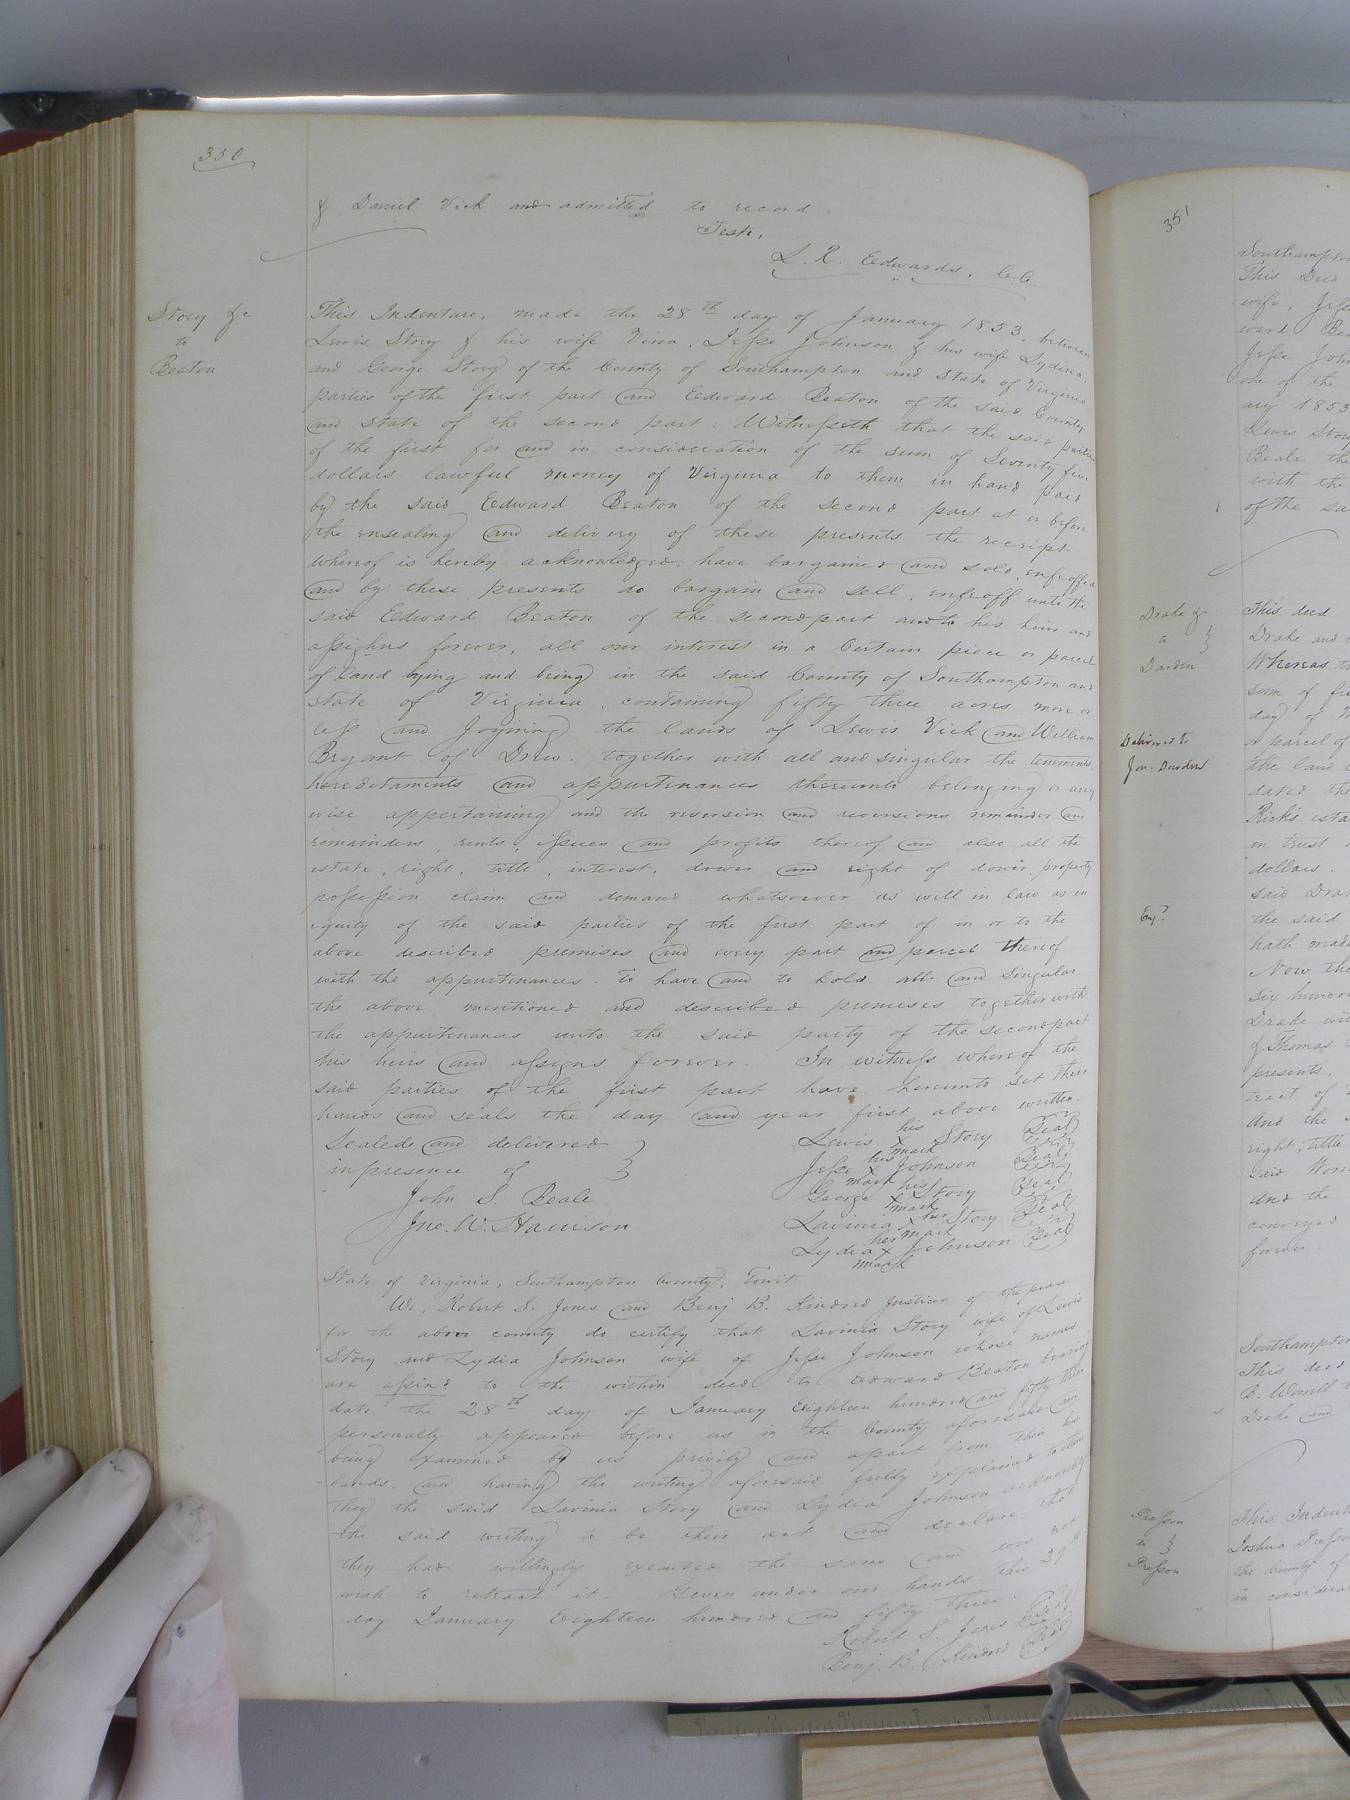 350
& Daniel Vick and admitted to record.
Teste,
L. R. Edwards, C.C.
Story &c
to
Beaton
This Indenture, made the 28th day of January 1853, between
Lewis Story & his wife Vina, Jesse Johnson & his wife Lydina,
and George Story of the County of Southampton and State of Virginia
parties of the first part and Eedward Beaton of the said County
and State of the second part: Witnesseth that the said parties
of the first for and in consideration of the sum of Seventy five
dollars lawful money of Virginia to them in hand paid
by the said Eedward Beaton of the second part at or before
the ensealing and delivery of these presents the receipt
whereof is hereby acknowledged, have bargained and sold, enfeoffed
and by these presents do bargain and sell, enfeoff unto the
said Eedward Beaton of the second part and to his heirs and
assighns forever, all our interest in a Certain piece or parcel
of land lying and being in the said County of Southampton and
state of Virginia, containing fifty three acres more or
less and Joyning the lands of Lewis Vick and William
Bryant of Drew. together with all and singular the tenements
hereditaments and appurtenances thereunto belonging or any
wise appertaining and the reversion and reversions remainder and
remainders, rents, issues and profits thereof and also all the
estate, right, title, interest, dower and right of dower, property
possession claim and demand whatsoever as well in law as in
equity of the said parties of the first part of in or to the
above described premises and every part and parcel thereof
with the appurtenances. To have and to hold all and singular
the above mentioned and described premises together with
the appurtenances unto the said party of the second part
his heirs and assigns forever. In witness whereof the
said parties of the first part have hereunto set there
hands and seals the day and year first above written.
Sealed and delivered }
in presence of }
John S. Beale
Jno. W. Harrison
Lewis his x mark Story Seal
Jesse his x mark Johnson Seal
George his x mark Story Seal
Lavinia her x mark Story Seal
Lydia her x mark Johnson Seal
State of Virginia, Southampton County, Towit
We, Robert S. Jones and Benj B. Kindred Justices of the peace
for the above county do certify that Lavinia Story wife of Lewis
Story and Lydia Johnson wife of Jesse Johnson whose names
are assind to the within deed to Edward Beaton bearing
date the 28th day of January Eighteen hundred and fifty three
personally appeared before us in the County aforesaid and
being examined by us privily and apart from their hus
bands, and having the writing aforesaid fully explained to them
they the said Lavinia Story and Lydia Johnson acknowledge
the said writing to be their act and declare that
they had willingly executed the same and does not
wish to retract it. Geven under our hands this 29th
day January Eighteen hundred and fifty three.
Robert S. Jones Seal
Benj. B. Kindred Seal
351
Southampton
This Deed
wife, Jesse
ward Bea
Jesse John
one of the
ary 1853
Lewis Story
Beale the
with the
of the sa
Drake &
to }
Darden
This deed
Drake and
Whereas th
sum of fi
day of
or parcel of
Delivered to
Jno. Darden
the land
dated the
Ricks esta
in trust
dollars.
said Drak
the said
hath made
Now the
six hundre
Drake wit
& Thomas
presents,
tract of
And the
right, title
said Worre
And the
conveyed
forever.
Southampton
This deed
B. Worrell
Drake and
Presson
to }
Presson
This Indent
Joshua Presso
the County of
in considerat